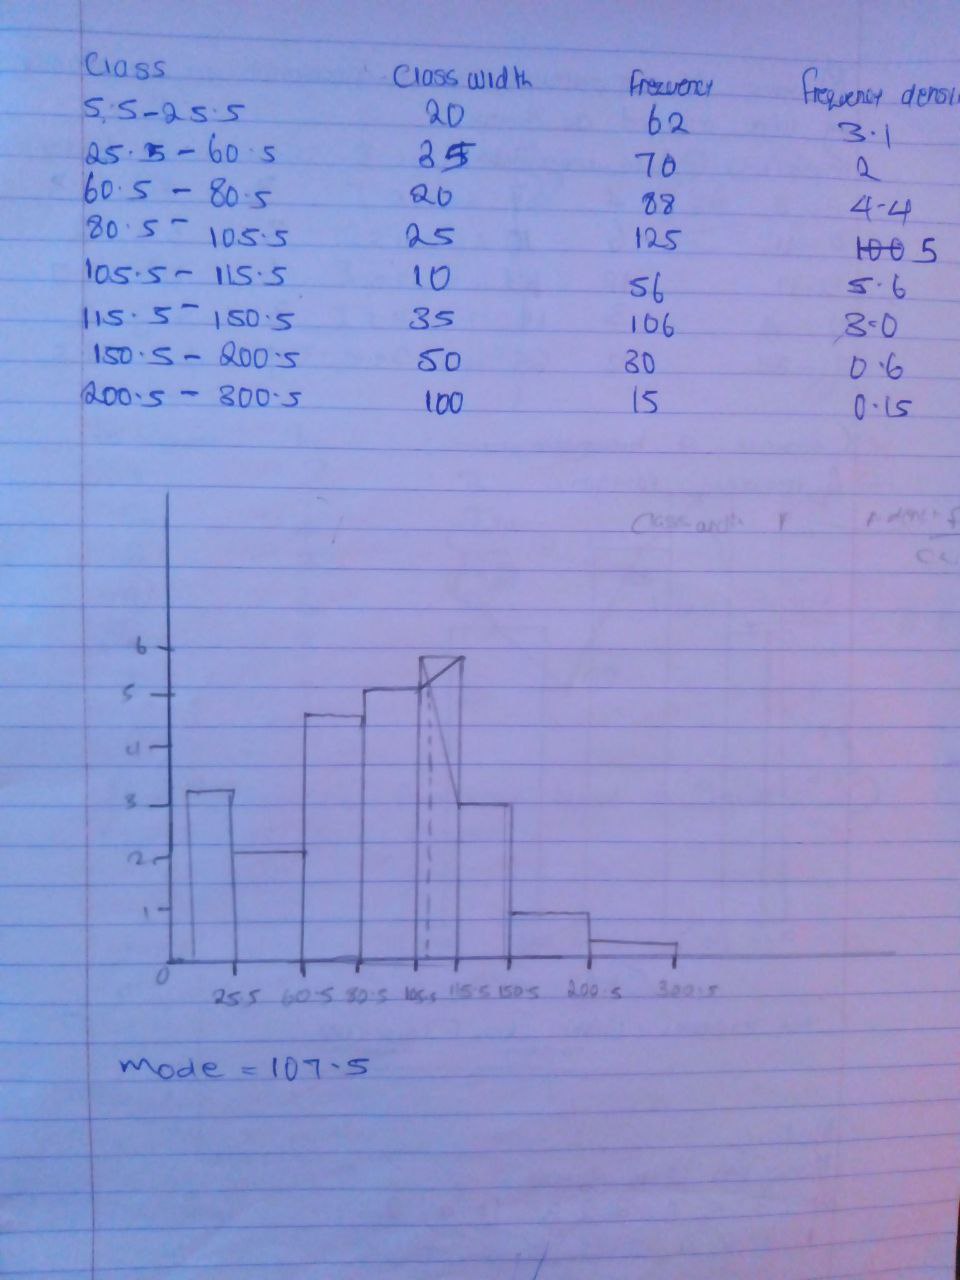 Class Class width frequency frequency
5.5-25.5 20 62 3.1
25.5 - 60.5 35 70 2
60.5 - 80.5 20 88 4.4
80.5 - 105.5 25 125 100 5
105.5 - 115.5 10 56 5.6
115.5 - 150.5 35 106 3.0
150.5 - 200.5 50 30 0.6
200.5 - 300.5 100 15 0.15
6
5
4
3
2
1
0
25.5 60.5 80.5 105.5 115.5 150.5 200.5 300.5
Mode = 107.5